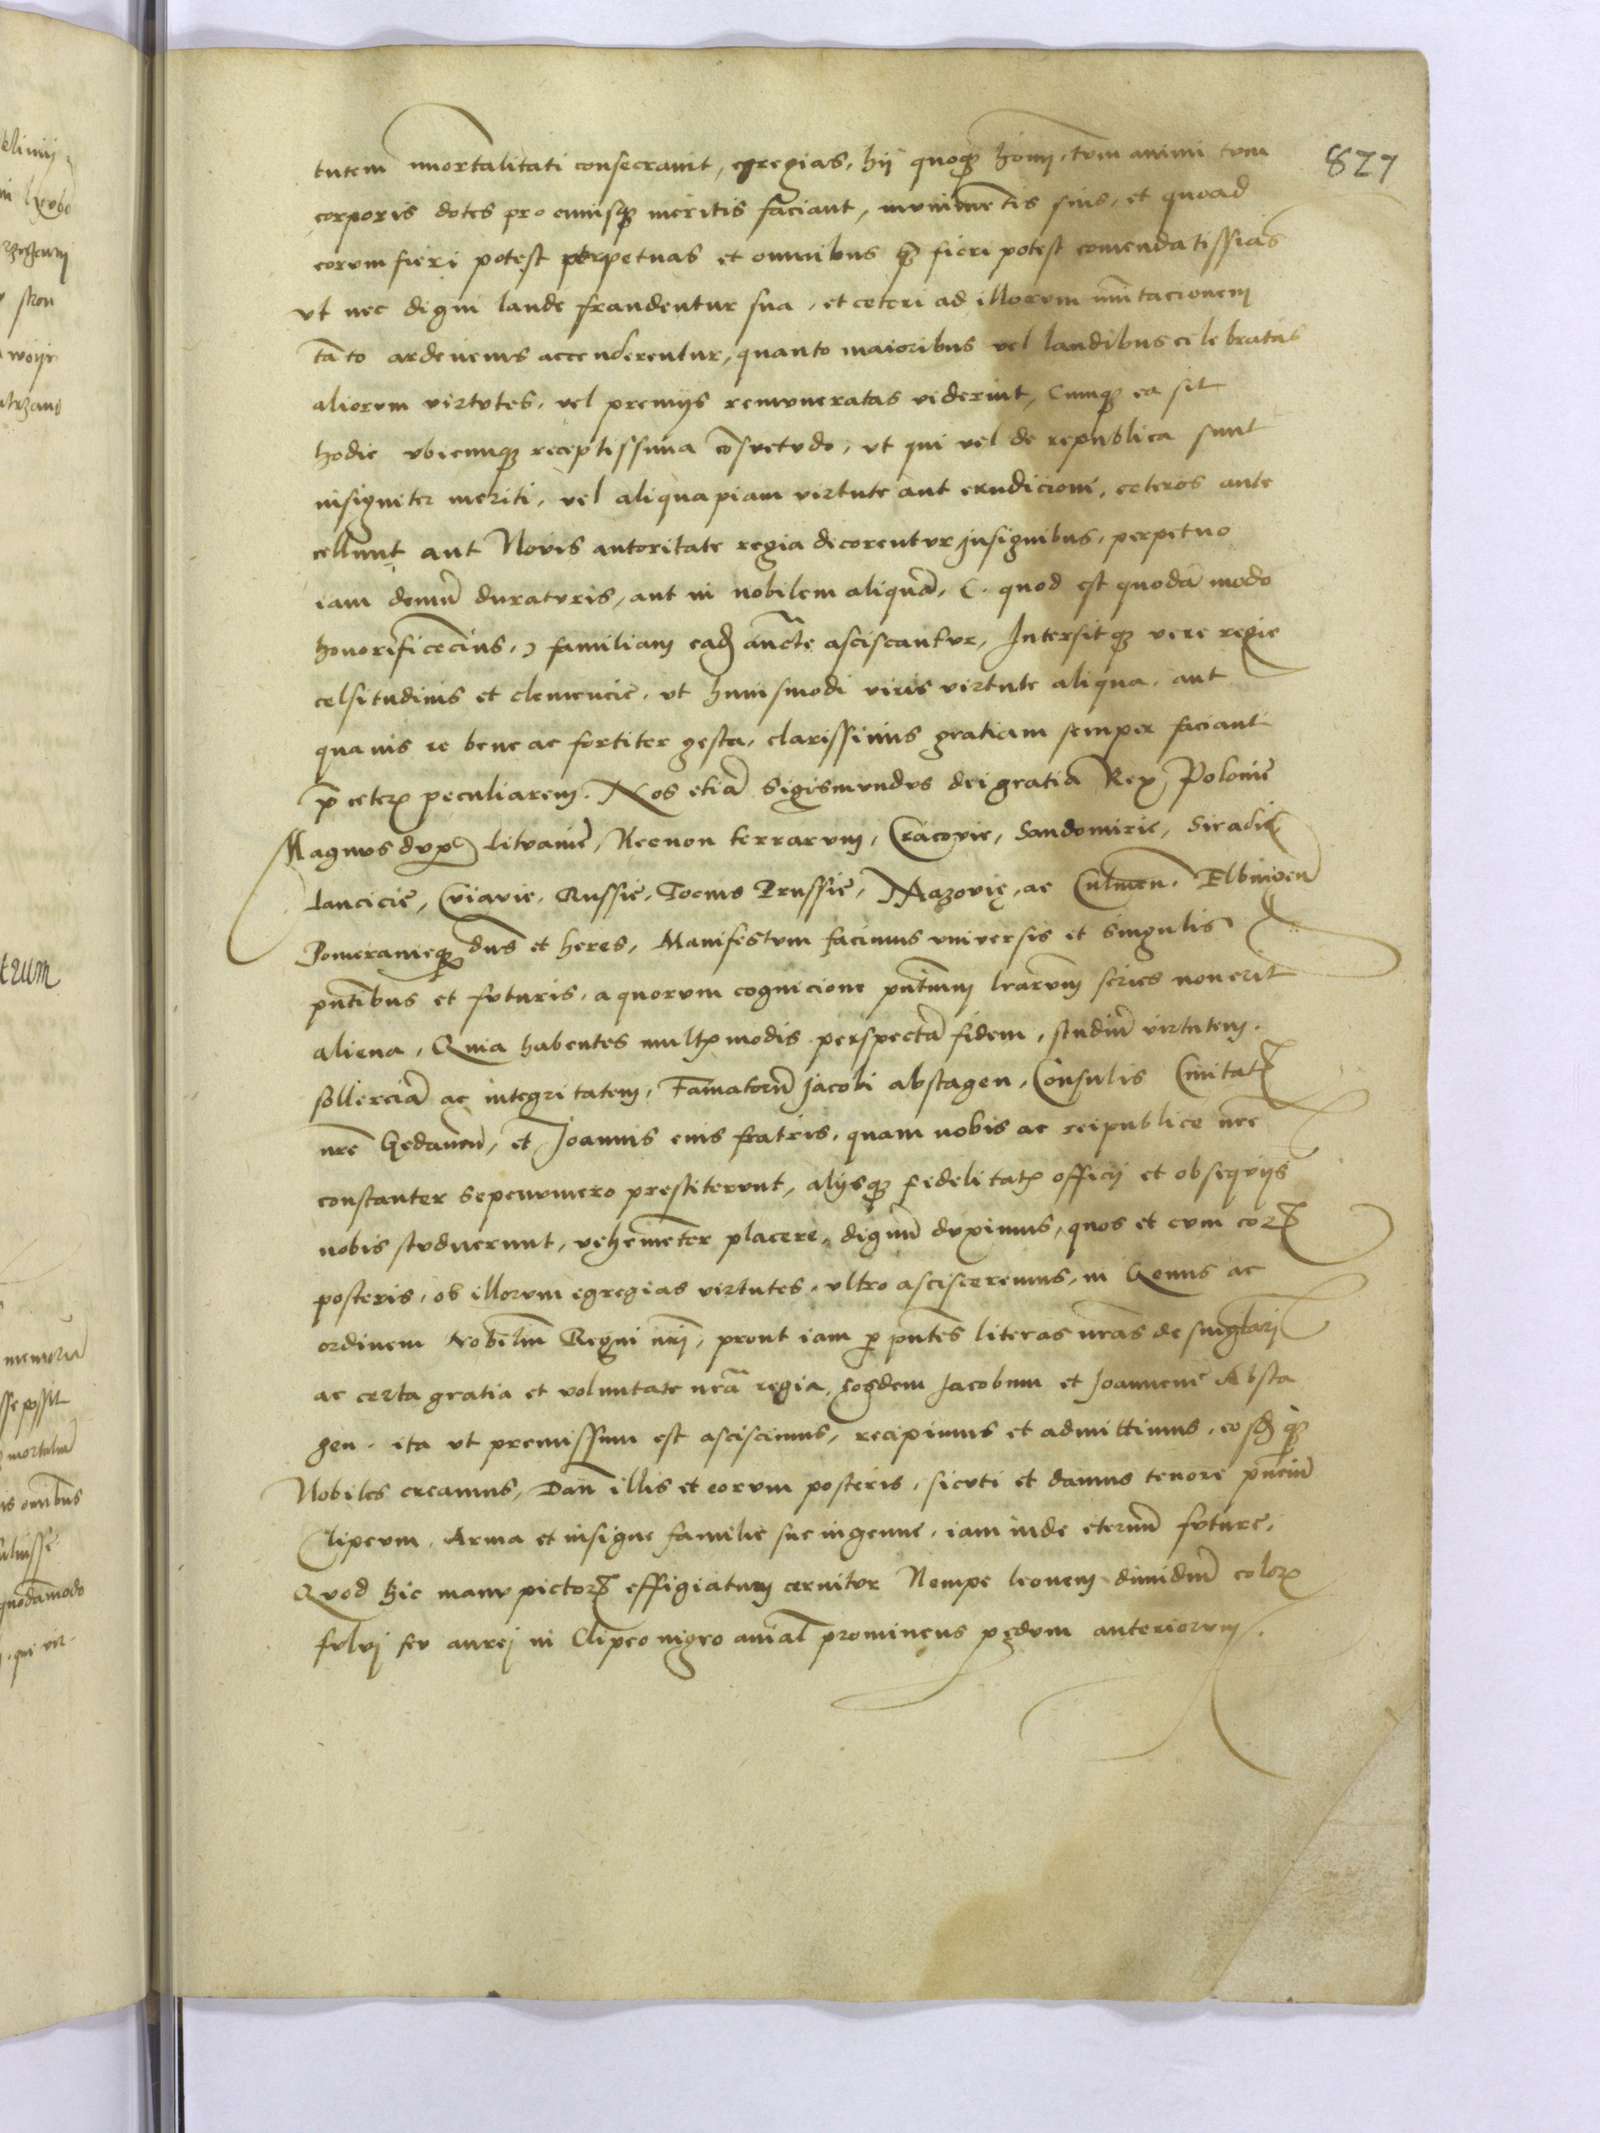 827
tutem immortalitati consecravit, egregias, hij quoqꝫ homi, tum animi tum
corporis dotes pro cuiusqꝫ meritis faciant, munimētis suis, et quoad
eorum fieri potest perpetuas et omnibus fieri potest comendatissias
ut nec digni laude fraudentur sua, et ceteri ad illorum imitacionem
tāto ardencius accenderentur, quanto maioribus vel laudibus celebratas
aliorum virtutes, vel premijs remuneratas viderint, Cumqꝫ ea sit
hodie ubicunqꝫ receptissima cōsuetudo, ut qui vel de republica sunt
insigniter meriti, vel aliquapiam virtute aut erudicioni, ceteros ante
cellunt aut Novis autoritate regia decorentur insignibus, perpetuo
iam demū duraturis, aut in nobilem aliquā, (. quod est quodā modo
honorificēcius, .) familiam eadē aucte asciscantur, Intersitqꝫ vere regie
celsitudinis et clemencie, ut huiusmodi viris virtute aliqua, aut
quavis re bene ac fortiter gesta, clarissimis gratiam semper faciant
p̄ceterꝭ peculiarem. Nos etiā Sigismundus dei gratia Rex Polonie
Magnus dux Litvanie, Necnon terrarum, Cracovie, Sandomirie, Siradie
Lancicie, Cuiavie, Russie, Tocius Prussie, Mazovię, ac Culmen. Elbingen
Pomeranieqꝫ dn̄s et heres, Manifestum facimus universis et singulis
pn̄tibus et futuris, a quorum cognicione pn̄tium lr̄arum series noverit
aliena, Quia habentes multꝭ modis perspectā fidem, studiū virtutem.
sollerciā ac integritatem, Famatorū Jacobi abstagen, Consulis Civitatꝭ
nr̄e Gedanen̄, et Joannis eius fratris, quam nobis ac reipublice nr̄e
constanter sepenumero prestiterunt, alijsqꝫ fidelitatꝭ officij et obsequijs
nobis studuerunt, vehemēter placere, dignū duximus, quos et cum eorꝭ
posteris, ob illorum egregias virtutes, ultro ascisceremus, in Genus ac
ordinem Nobiliū Regni nr̄i, prout iam p pn̄tes literas nr̄as de singlari
ac certa gratia et voluntate nr̄a regia, eosdem Jacobum et Joannem Absta
gen. ita ut premissum est asciscimus, recipimus et admittimus, eosdēqꝫ
Nobiles creamus, Dan̄ illis et eorum posteris, sicuti et damus tenore pn̄ciū
Clipeum, Arma et insigne familie sue ingenue, iam inde eternū future,
Quod hic manu pictorꝭ effigiatum cernitur Nempe leonem dimidiū colorꝭ
fulvi seu aurei in Clipeo nigro prominens pedum anteriorum.